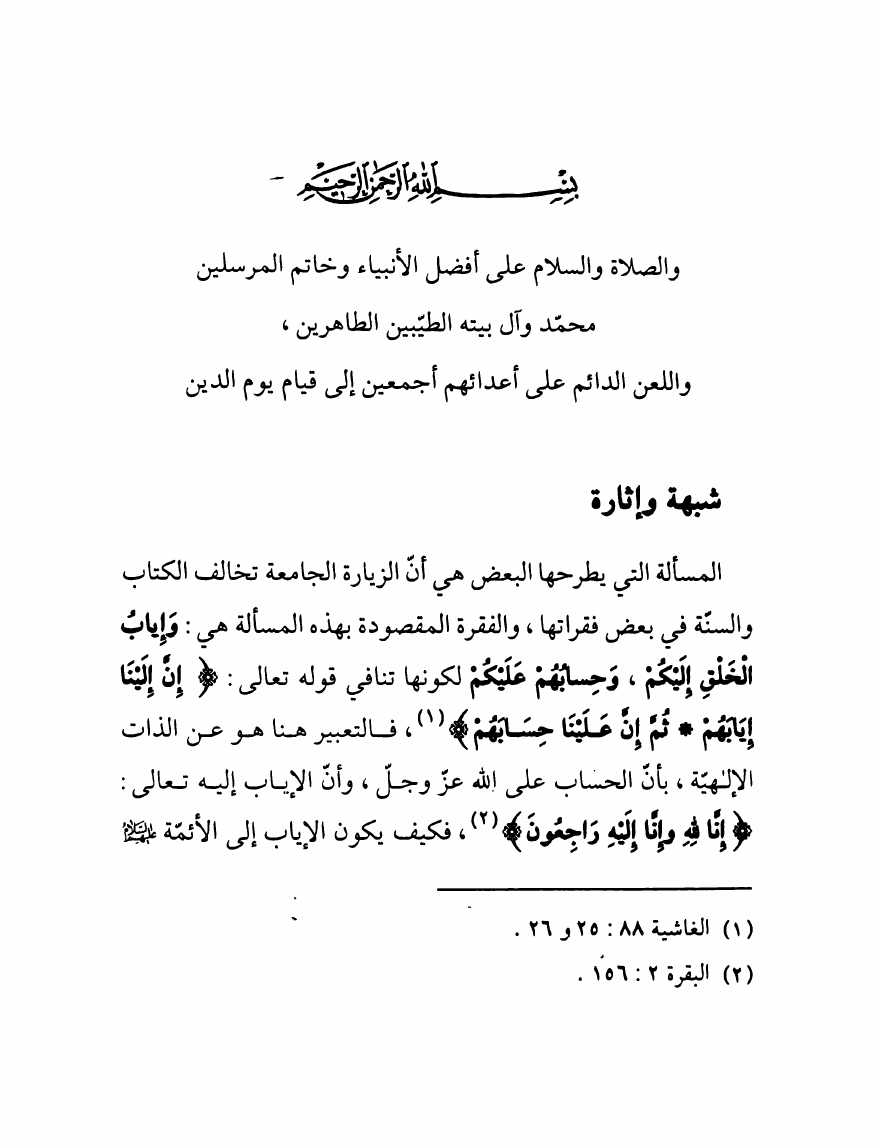 بسم الله الرحمن الرحيم
والصلاة والسلام على أفضل الأنبياء وخاتم المرسلين
محمّد وآل بيته الطيّبين الطاهرين ،
واللعن الدائم على أعدائهم أجمعين إلى قيام يوم الدين
شبهة وإثارة
المسألة التي يطرحها البعض هي أنّ الزيارة الجامعة تخالف الكتاب
والسنّة في بعض فقراتها ، والفقرة المقصودة بهذه المسألة هي : وَإِيابُ
الْخَلْقِ إِلَيْكُمْ ، وَحِسابُهُمْ عَلَيْكُمْ لكونها تنافي قوله تعالى : ﴿ إِنَّ إِلَيْنَا
إِيَابَهُمْ * ثُمَّ إِنَّ عَلَيْنَا حِسَابَهُمْ ﴾(١) ، فالتعبير هنا هو عن الذات
الإلٰهيّة ، بأنّ الحساب على الله عزّ وجلّ ، وأنّ الإياب إليه تعالى :
﴿ إِنَّا لِلَّهِ وإِنَّا إِلَيْهِ رَاجِعُونَ ﴾(٢) ، فكيف يكون الإياب إلى الأئمّة عليهم السلام
(١) الغاشية ٨٨ : ٢٥ و ٢٦ .
(٢) البقرة ٢ : ١٥٦ .